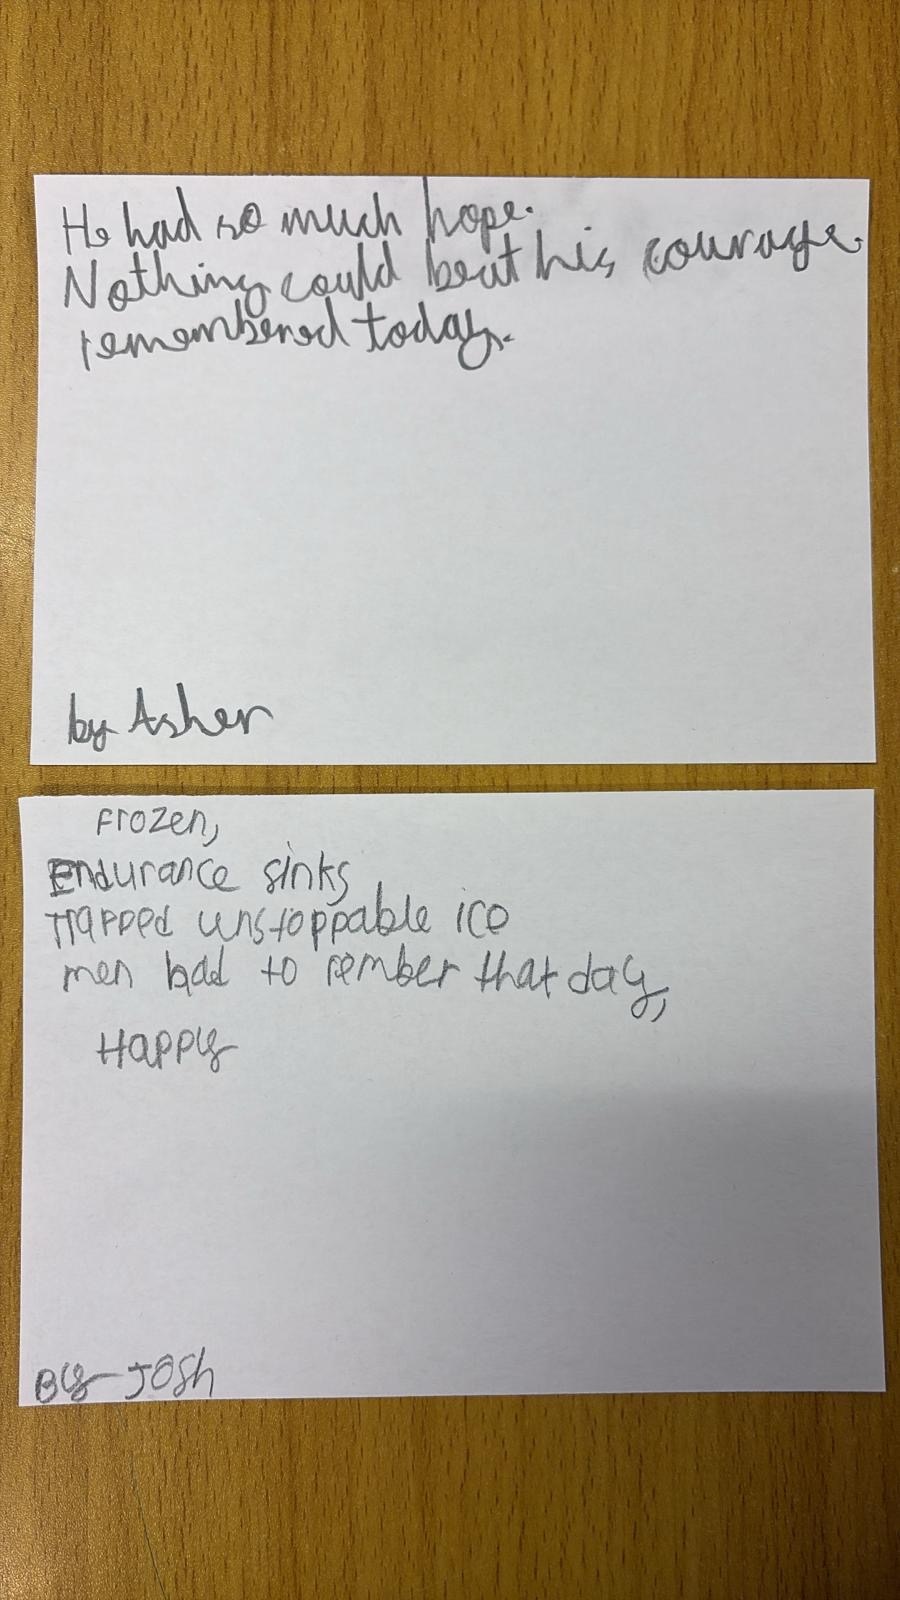 He had so much hope.
Nothing could beat his courage.
remembered today.
by Asher
Frozen,
Endurance sinks
Trapped unstoppable ice
men had to rember that day,
Happy
By Josh